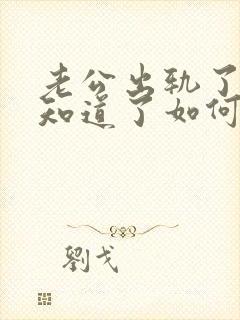 老公出轨了
知道了如何
劉戈